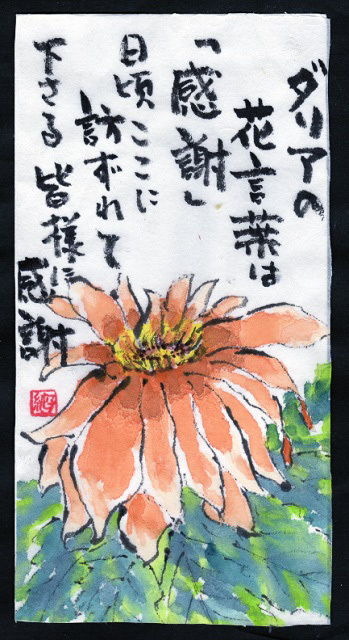 ダリアの
花言葉は
「感謝」
日頃ここに
訪ずれて
下さる皆様に
感謝